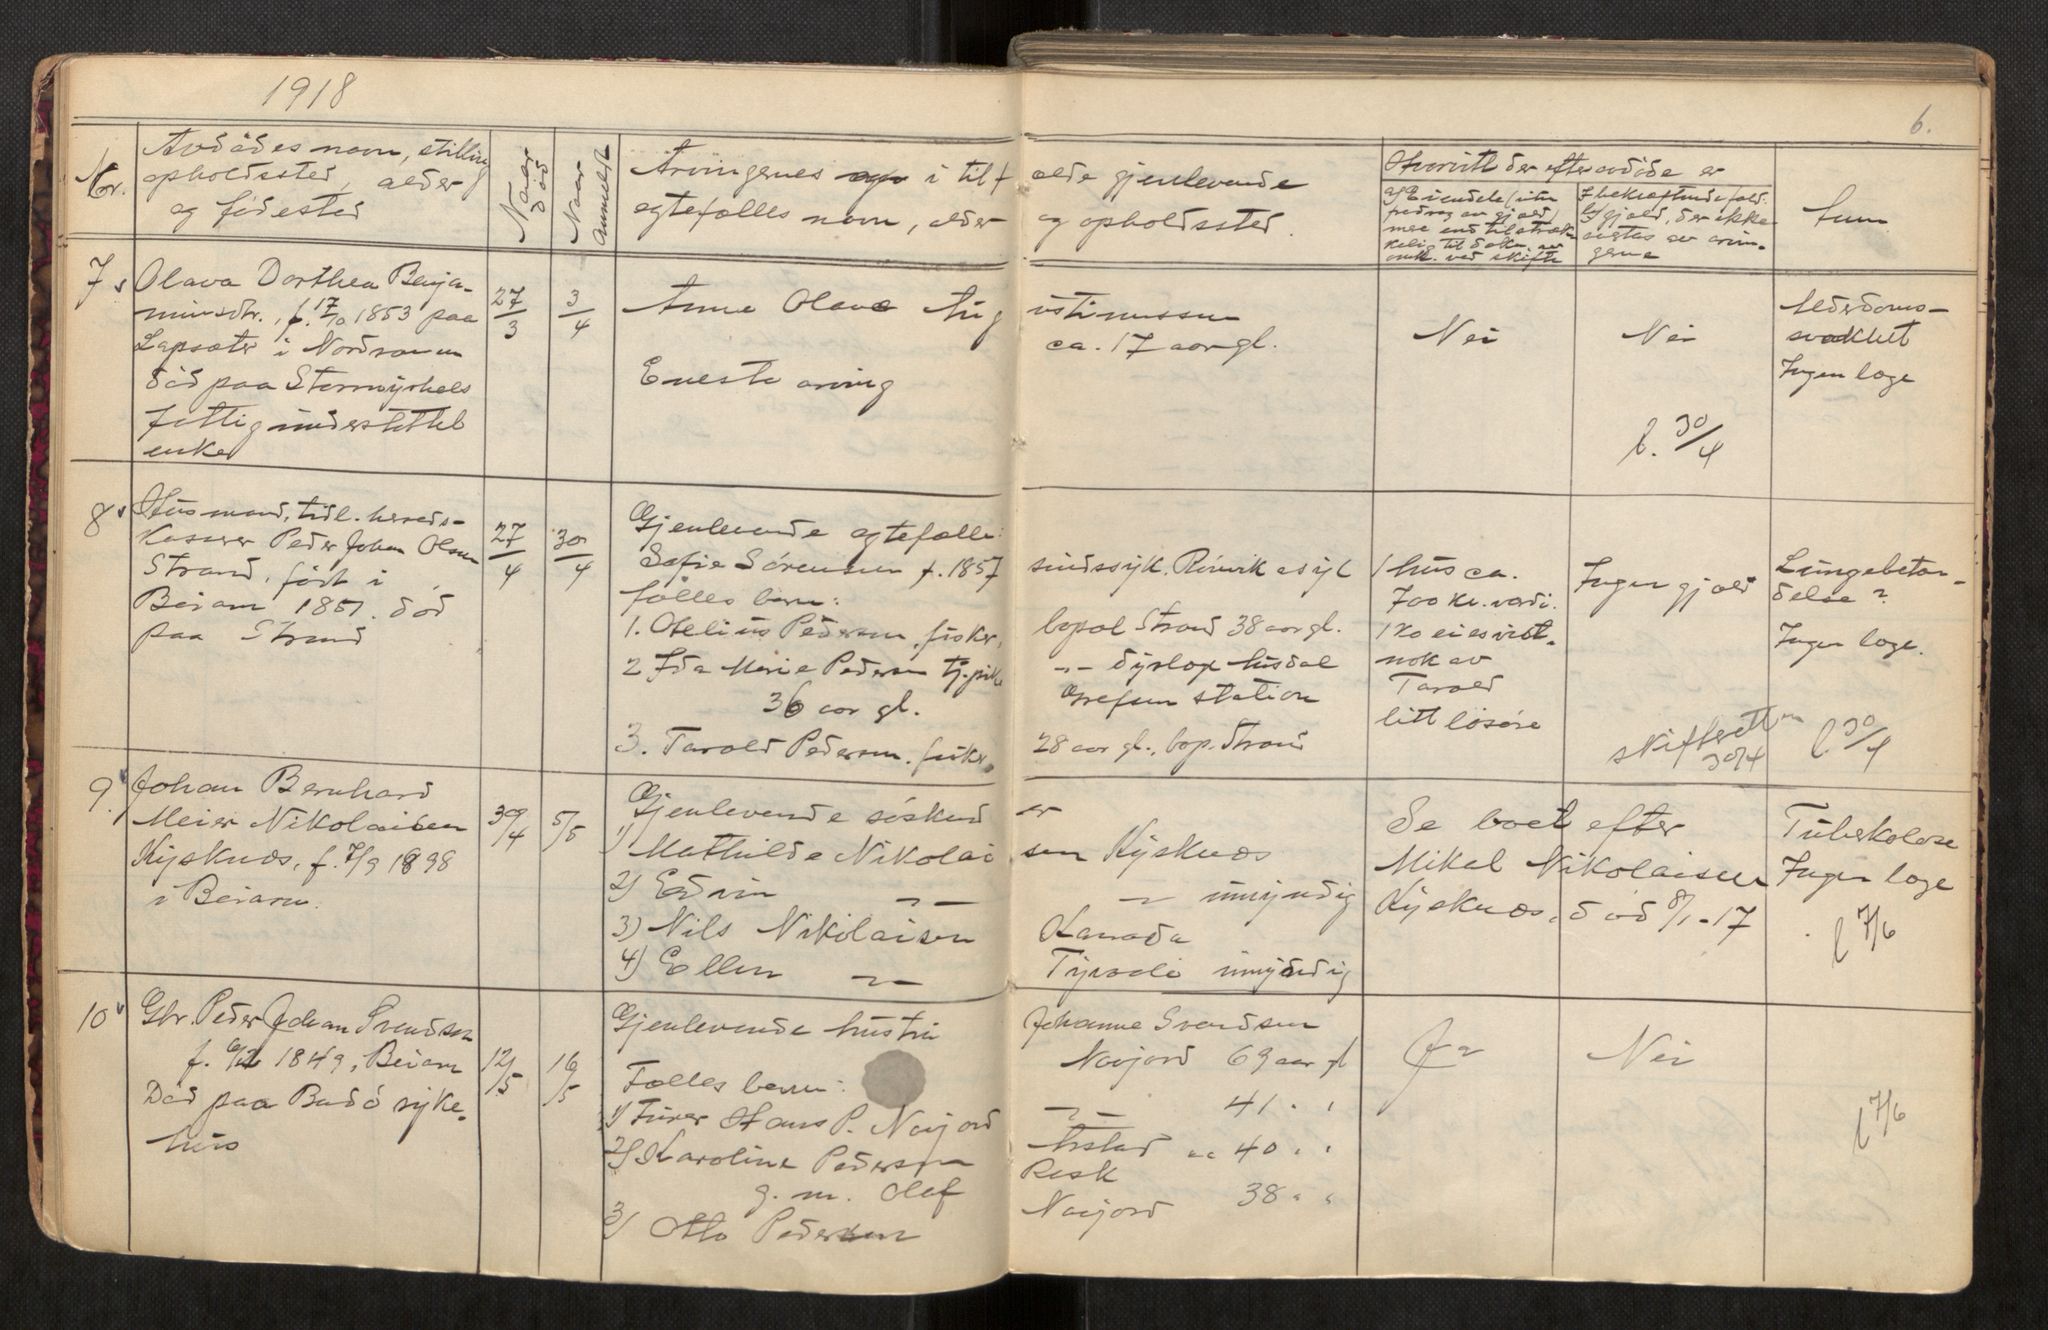 1918
6.
Nr.
Avdødes navn, stilling
opholdssted, alder
og fødested
Naar
död
Naar
Anmeldt
Arvingernes og i tilf
egtefælles navn, alder
ælde gjenlevende
og opholdssted.
Hvorvidt der efter avdöde er
a) Eiendele (uten
fradrag av gjæld)
mer end tilstræk
kelig til
omk. ved skifte
I bekræftende fald.
b) gjæld, der ikke
av arvin-
gerne
7
Olava Dorthea Benja-
minsdtr., f. 17/10 1853 paa
Lapsæter i Nordranen
död paa Stormyrhels
fattigunderstöttet
enke
27/3
3/4
Anne Olava Aug
Eneste arving
ustinussen
ca. 17 aar gl.
Nei
Nei
l. 30/4
Alderdoms-
svakhet
Ingen læge
8
Husmand, tidl. hereds-
kasserer Peder Johan Olsen
Strand, födt i
Beiarn 1851. död
paa Strand
27/4
30/4
Gjenlevende egtefælle:
Sofie Sörensen f. 1857
fælles barn:
1. Otelius Pedersen, fisker,
2 Ida Marie Pedersen tj.pike
36 aar gl.
3. Tarald Pedersen. fisker,
sindssyk. Rönvik asyl
bopæl Strand 38 aar gl.
-"- dyrlæge Husdal
Grefsen station
28 aar gl., bop. Strand
1 hus ca.
700 kr. værdi.
1 ko eies vist-
nok av
Tarald
litt lösöre
Ingen gjæld
skifterett
30/4
Lungebetæn-
delse?
Ingen læge.
l. 30/4
9.
Johan Bernhard
Meier Nikolaisen
Kjelknæs, f. 7/9 1898
i Beiarn.
30/4
5/5
Gjenlevende söskend
1) Mathilde Nikolai
2) Edvin -"-
3) Nils Nikolaisen
4) Ellen -"-
er
sen Kjelknæs
-"- umyndig
Kanada
Tysvali umyndig
Se boet efter
Mikal Nikolaisen
Kjelknæs, död 8/1-17
Tuberkolose
Ingen læge
l 7/6
10
Gbr. Peder Johan Svendsen
1849, Beiarn
Död paa Bodö syke-
hus
12/5
16/5
Gjenlevende hustru
Fælles barn:
1) Furer Hans P. Navjord
2) Karoline Pedersen
g. m. Olaf
3) Otto Pedersen
Johanne Svendsen
Navjord 69 aar gl
-"- 41 " "
Arstad " 40 " "
Resk
Navjord 38 " "
Ja
Nei
l 7/6